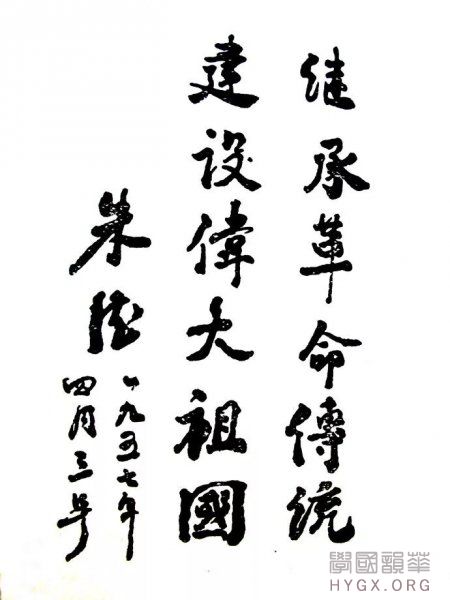 继承革命傳统
建设偉大祖國
朱德
一九五七年
四月三号
華韻國學
HYGX.ORG